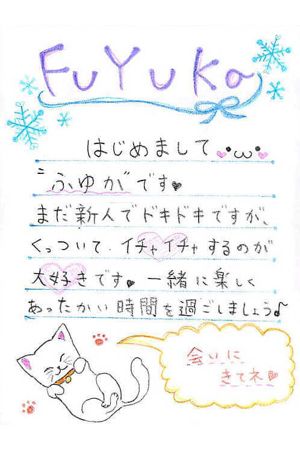 FuYuKa
はじめまして
"ふゆか"です♥
まだ新人でドキドキですが、
くっついて、イチャイチャするのが
大好きです。一緒に楽しく
あったかい時間を過ごしましょう♪
会いに
きてネ♥